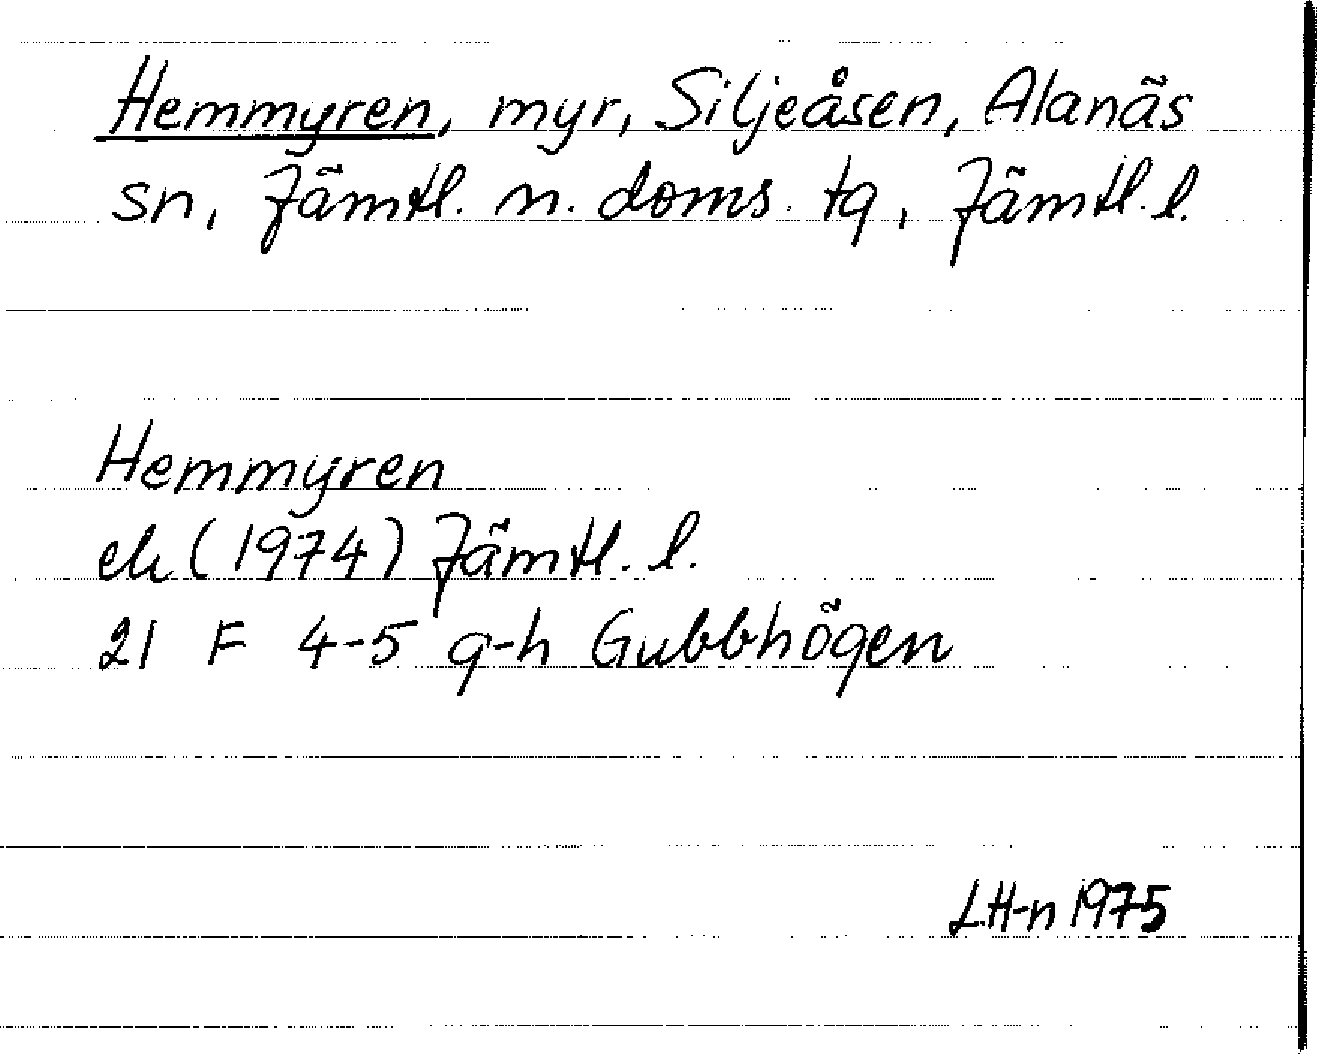 Hemmyren, myr, Siljeåsen, Alanäs
sn, Jämtl. n. doms. tg, Jämtl. l.
Hemmyren
ek (1974) Jämtl. l.
21 F 4-5 g-h Gubbhögen
LH-n 1975